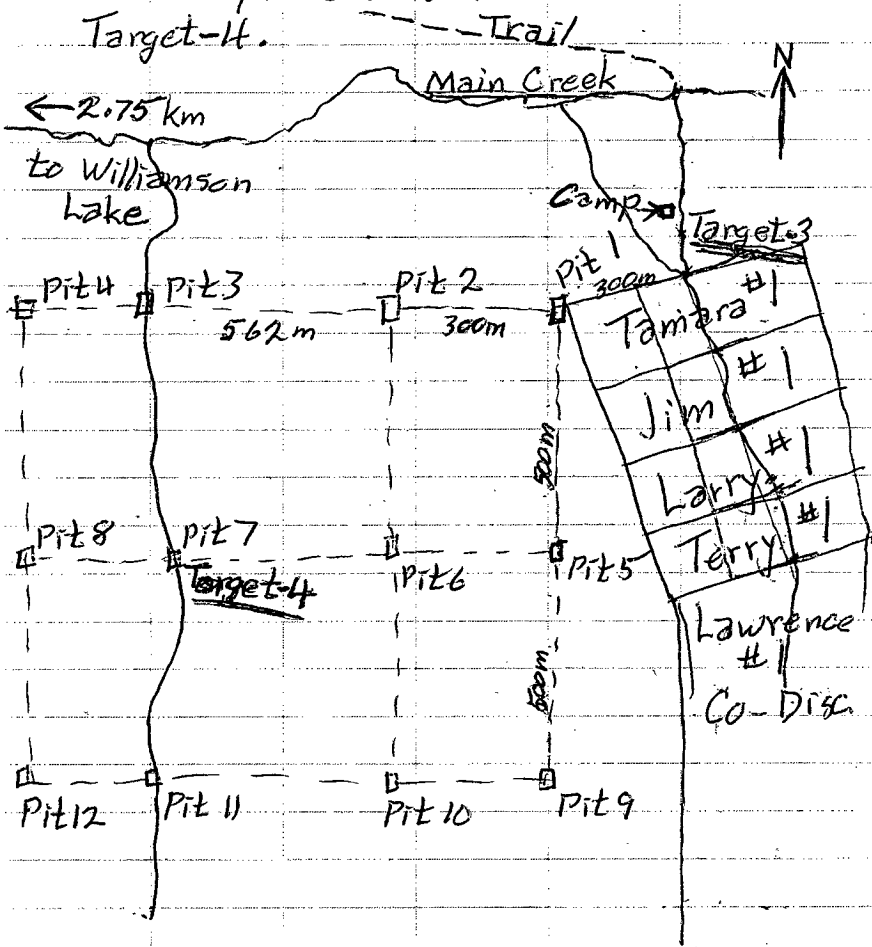 Target-4.
Trail
N
Main Creek
←2.75 km
to Williamson
Lake
Camp→
Target-3
Pit 4
Pit 3
Pit 2
Pit 1
300m
562m
300m
Tamara #1
Jim #1
Larry #1
Terry #1
Lawrence
#1
Co-Disc.
500m
Pit 8
Pit 7
Target-4
Pit 6
Pit 5
500m
Pit 12
Pit 11
Pit 10
Pit 9